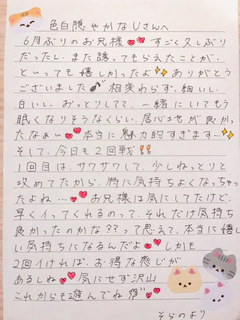 色白穏やかなUさんへ
6月ぶりのお兄様 すごく久しぶり
だったし、また誘ってもらえたことが、
とっっても嬉しかったよ ありがとう
ございました 相変わらず、細い、
白い、おっとりしてて、一緒にいてもう
眠くなりそうなくらい、居心地が良かっ
たなぁー 本当に魅力的すぎます…
そして、今日も2回戦!!
1回目は、サワサワして、少しねっとりと
攻めてたから、特に気持ちよくなっちゃ
ったよね… お兄様は気にしてたけど、
早くイってくれるのって、それだけ気持ち
良かったのかな??って思えて、本当に嬉し
い気持ちになるんだよ しかも
2回イければ、お得な感じが
あるしね 気にせず沢山
これからも遊んでね
そらのより